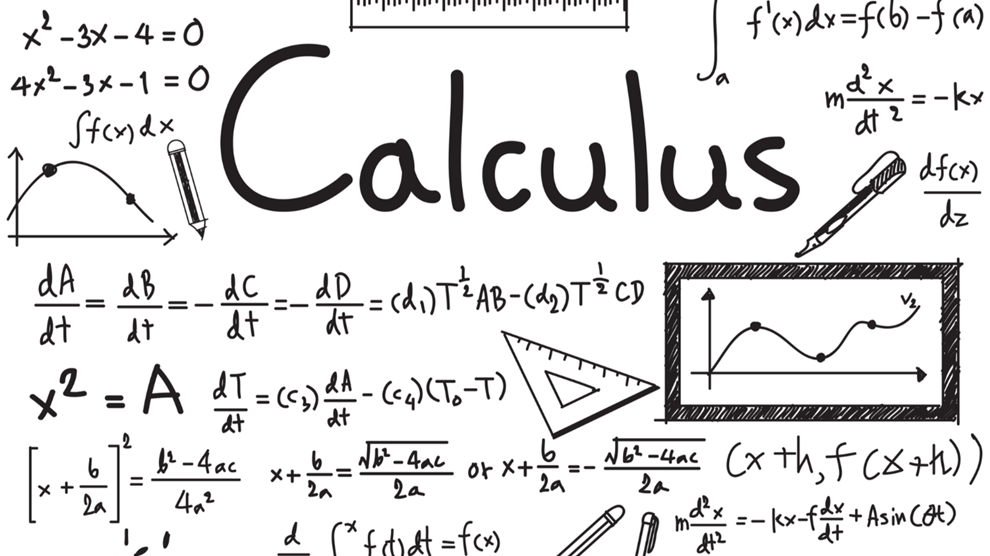 x² - 3x - 4 = 0
4x² - 3x - 1 = 0
∫f(x)dx
Calculus
∫ₐ f'(x)dx = f(b) - f(a)
m d²x/dt² = -kx
df(x)/dz
dA/dt = dB/dt = - dC/dt = - dD/dt = (d₁)T^½ AB - (d₂)T^½ CD
V₂
x² = A
dT/dt = (c₃) dA/dt - (c₄)(T₀ - T)
[x + b/2a]² = b² - 4ac/4a²
x + b/2a = √b² - 4ac/2a or x + b/2a = - √b² - 4ac/2a
(x+h, f(x+h))
d ∫ˣ f(t)dt = f(x)
m d²x/dt² = -kx - f dx/dt + A sin(θt)